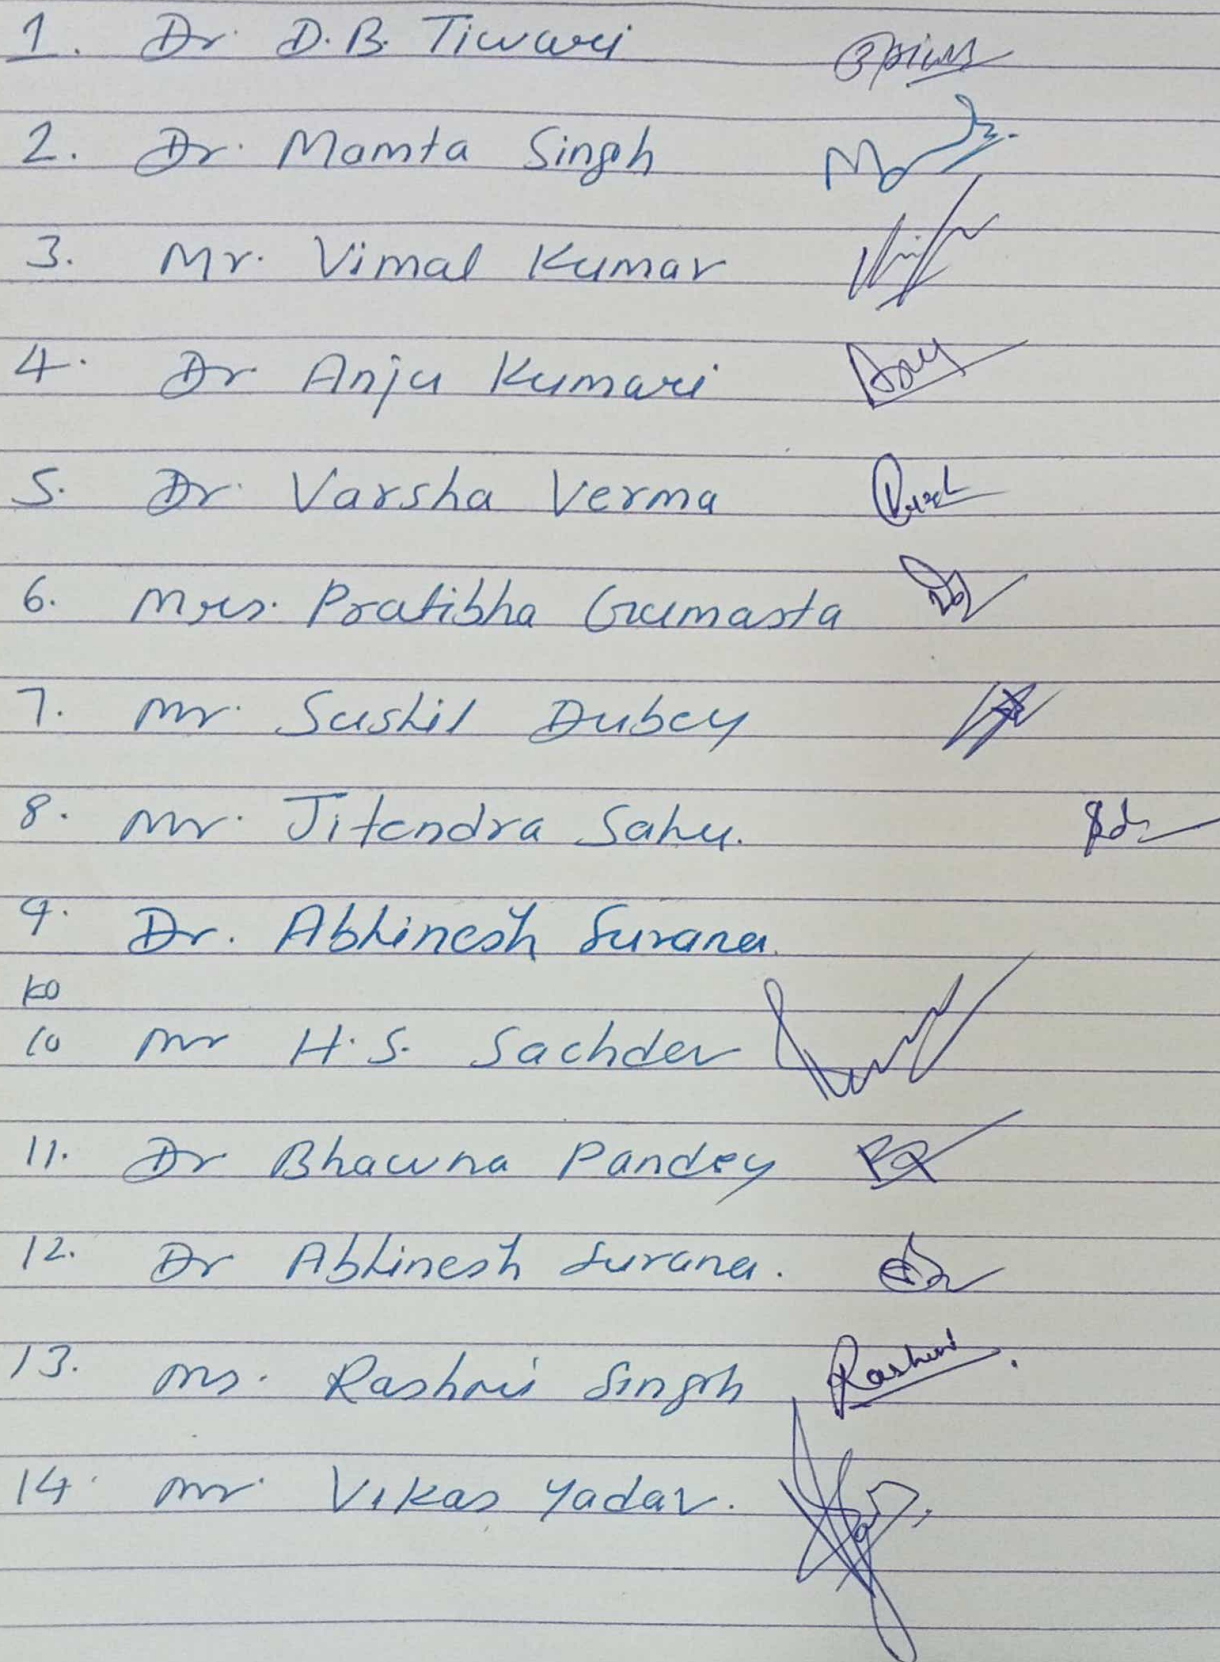 1. Dr. D.B. Tiwari
2. Dr. Mamta Singh
3. Mr. Vimal Kumar
4. Dr. Anju Kumari
5. Dr. Varsha Verma
6. Mrs. Pratibha Gumasta
7. Mr. Sushil Dubey
8. Mr. Jitendra Sahu.
9. Dr. Abhinesh Surana.
10 Mr H.S. Sachdev
11. Dr Bhawna Pandey
12. Dr Abhinesh Surana.
13. Ms. Rashmi Singh Rashmi
14. Mr. Vikas Yadav.